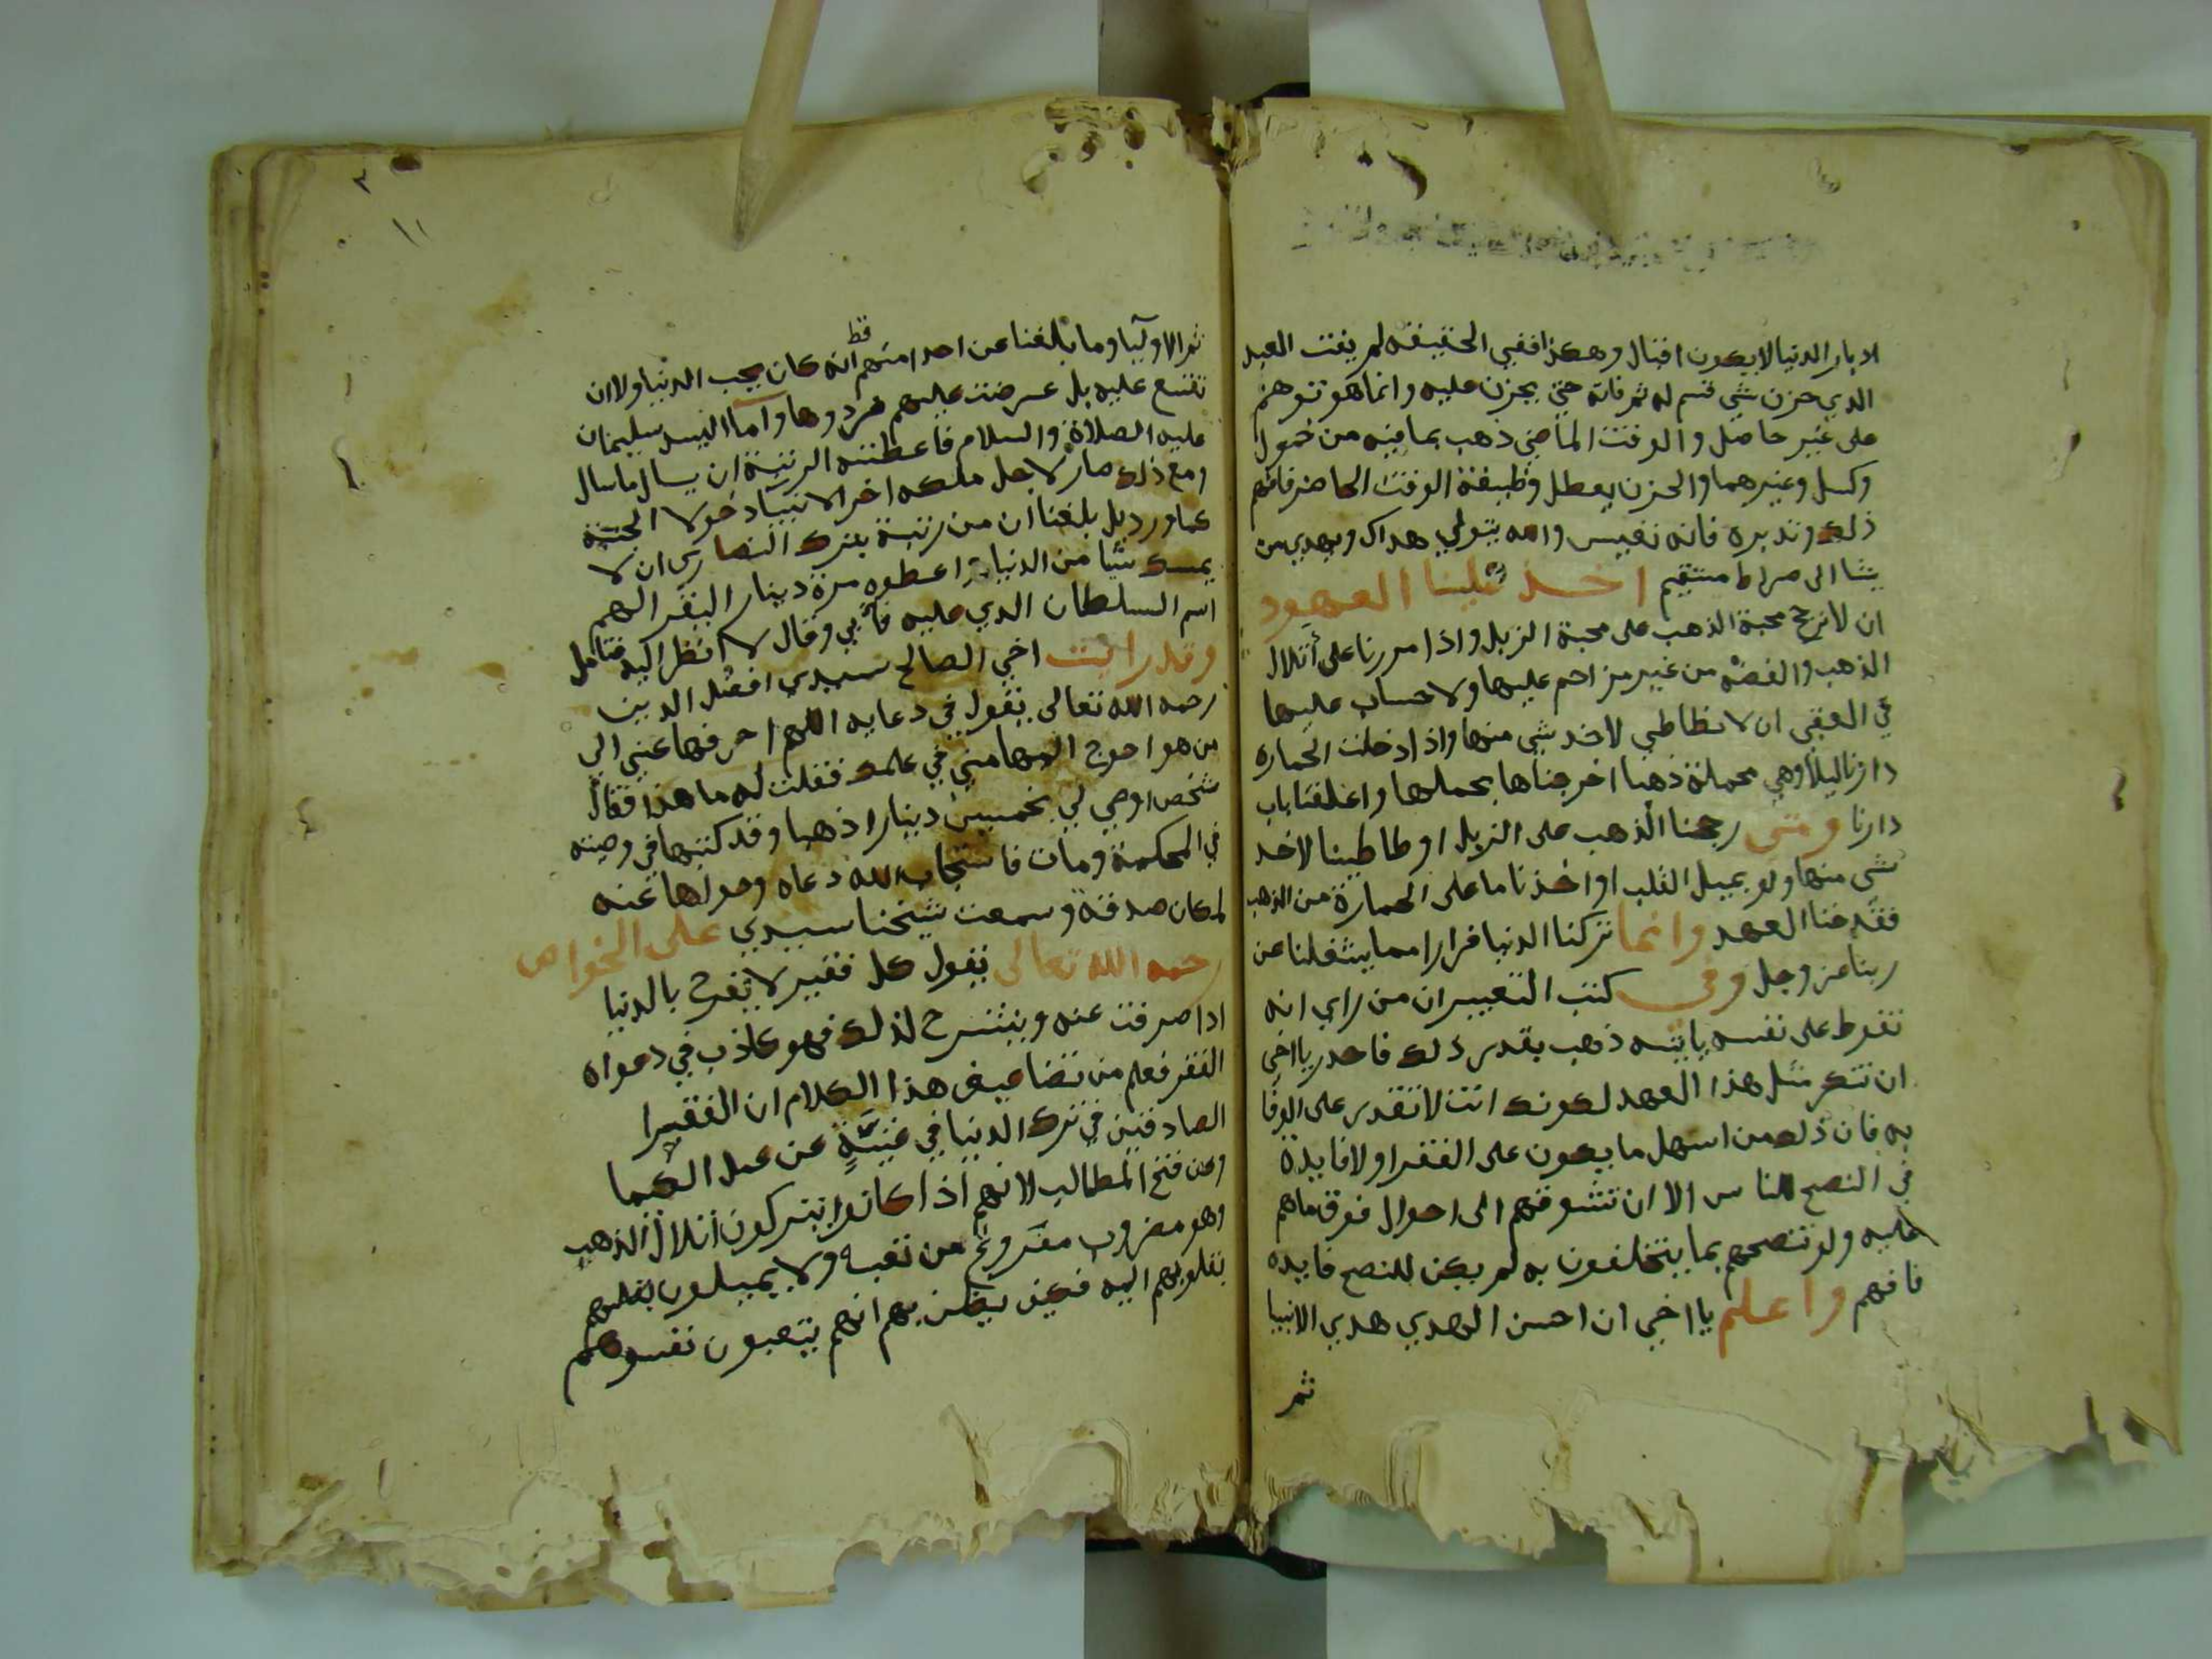 ادبار الدنيا لا يكون اقبال وهكذا ففي الحقيقة لم يفت العبد
الدي حزن شي قسم له ثم فاته حتي يحزن عليه وانما هو توهم
على غير حاصل والوقت الماضي ذهب بما فيه من خمول
وكسل وغيرهما والحزن يعطل وظيفة الوقت الحاضر فافهم
ذلك وتدبره فانه نفيس والله يتولي هداك ويهدي من
يشا الى صراط مستقيم اخذ علينا العهود
ان لا نرجح محبة الذهب على محبة الزبل واذا مررنا على أتلال
الذهب والفضة من غير مزاحم عليها ولا حساب عليها
في العقبى ان لا نطاطي لاخد شي منها واذا دخلت الحماره
دارنا ليلا وهي محملة ذهبا اخرجناها بحملها واغلقنا باب
دارنا ومتى رجحنا الذهب على الزبل او طاطينا لاخد
شي منها ولو بميل القلب او اخذنا ما على الحمارة من الذهب
فقد خنا العهد وانما تركنا الدنيا فرارا مما يشغلنا عن
ربنا عز وجل وفي كتب التعبير ان من راي انه
تغوط على نفسه ياتيه ذهب بقدر ذلك فاحدر يا اخي
ان تنكر مثل هذا العهد لكونك انت لا تقدر على الوفا
به فان ذلك من اسهل ما يكون على الفقرا ولا فايدة
في النصح للناس الا ان تشوقهم الى احوال فوق ما هم
عليه ولو تنصحهم بما يتخلقون به لم يكن للنصح فايده
فافهم واعلم يا اخي ان احسن الهدي هدي الانبيا
ثم
١١
ثم الاوليا وما بلغنا عن احد منهم انه قط كان يحب الدنيا ولا ان
تقنع عليه بل عرضت عليهم فردوها واما السيد سليمان
عليه الصلاة والسلام فاعطته الرتبة ان يسال ما سال
ومع ذلك صار لاجل ملكه اخر الانبيا دخولا الجنة
كما ورد بل بلغنا ان من رتبة بترك النصارى ان لا
يمسك شيا من الدنيا اعطوه مرة دينار اليقرا لهم
اسم السلطان الدي عليه فابي وقال لا انظر اليه فتامل
وقد رايت اخي الصالح سيدي افضل الدين
رحمه الله تعالى يقول في دعايه اللهم احرفها عني الي
من هو احوج اليها مني في علمك فقلت له ما هذا فقال
شخص اوصي لي بخمسين دينارا ذهبا وقد كتبها في وصيته
في المحكمة ومات فاستجاب الله دعاه وحولها عنه
لمكان صدقه وسمعت شيخنا سيدي على الخواص
رحمه الله تعالى يقول كل فقير لا يفرح بالدنيا
اذا صرفت عنه وينشرح لذلك فهو كاذب في دعواه
الفقر فعلم من تضاعيف هذا الكلام ان الفقرا
الصادقين في ترك الدنيا في غنية عن عمل الكيما
وعن فتح المطالب لانهم اذا كانوا يتركون أتلال الذهب
وهو مضروب مفروغ من تعبه ولا يميلون بقلبهم
بقلوبهم اليه فكيف يظن بهم انهم يتعبون نفوسهم